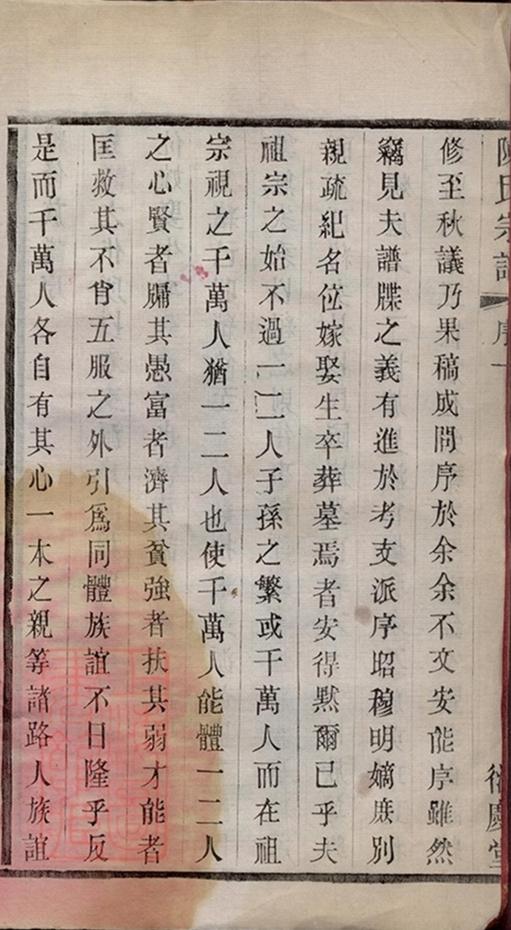 陳氏宗譜 序 一 衍慶堂
修至秋議乃果稿成問序於余余不文安能序雖然
竊見夫譜牒之義有進於考支派序昭穆明嫡庶別
親疏紀名位嫁娶生卒葬墓焉者安得默爾已乎夫
祖宗之始不過一二人子孫之繁或千萬人而在祖
宗視之千萬人猶一二人也使千萬人能體一二人
之心賢者牖其愚富者濟其貧強者扶其弱才能者
匡救其不肖五服之外引爲同體族誼不日隆乎反
是而千萬人各自有其心一本之親等諸路人族誼